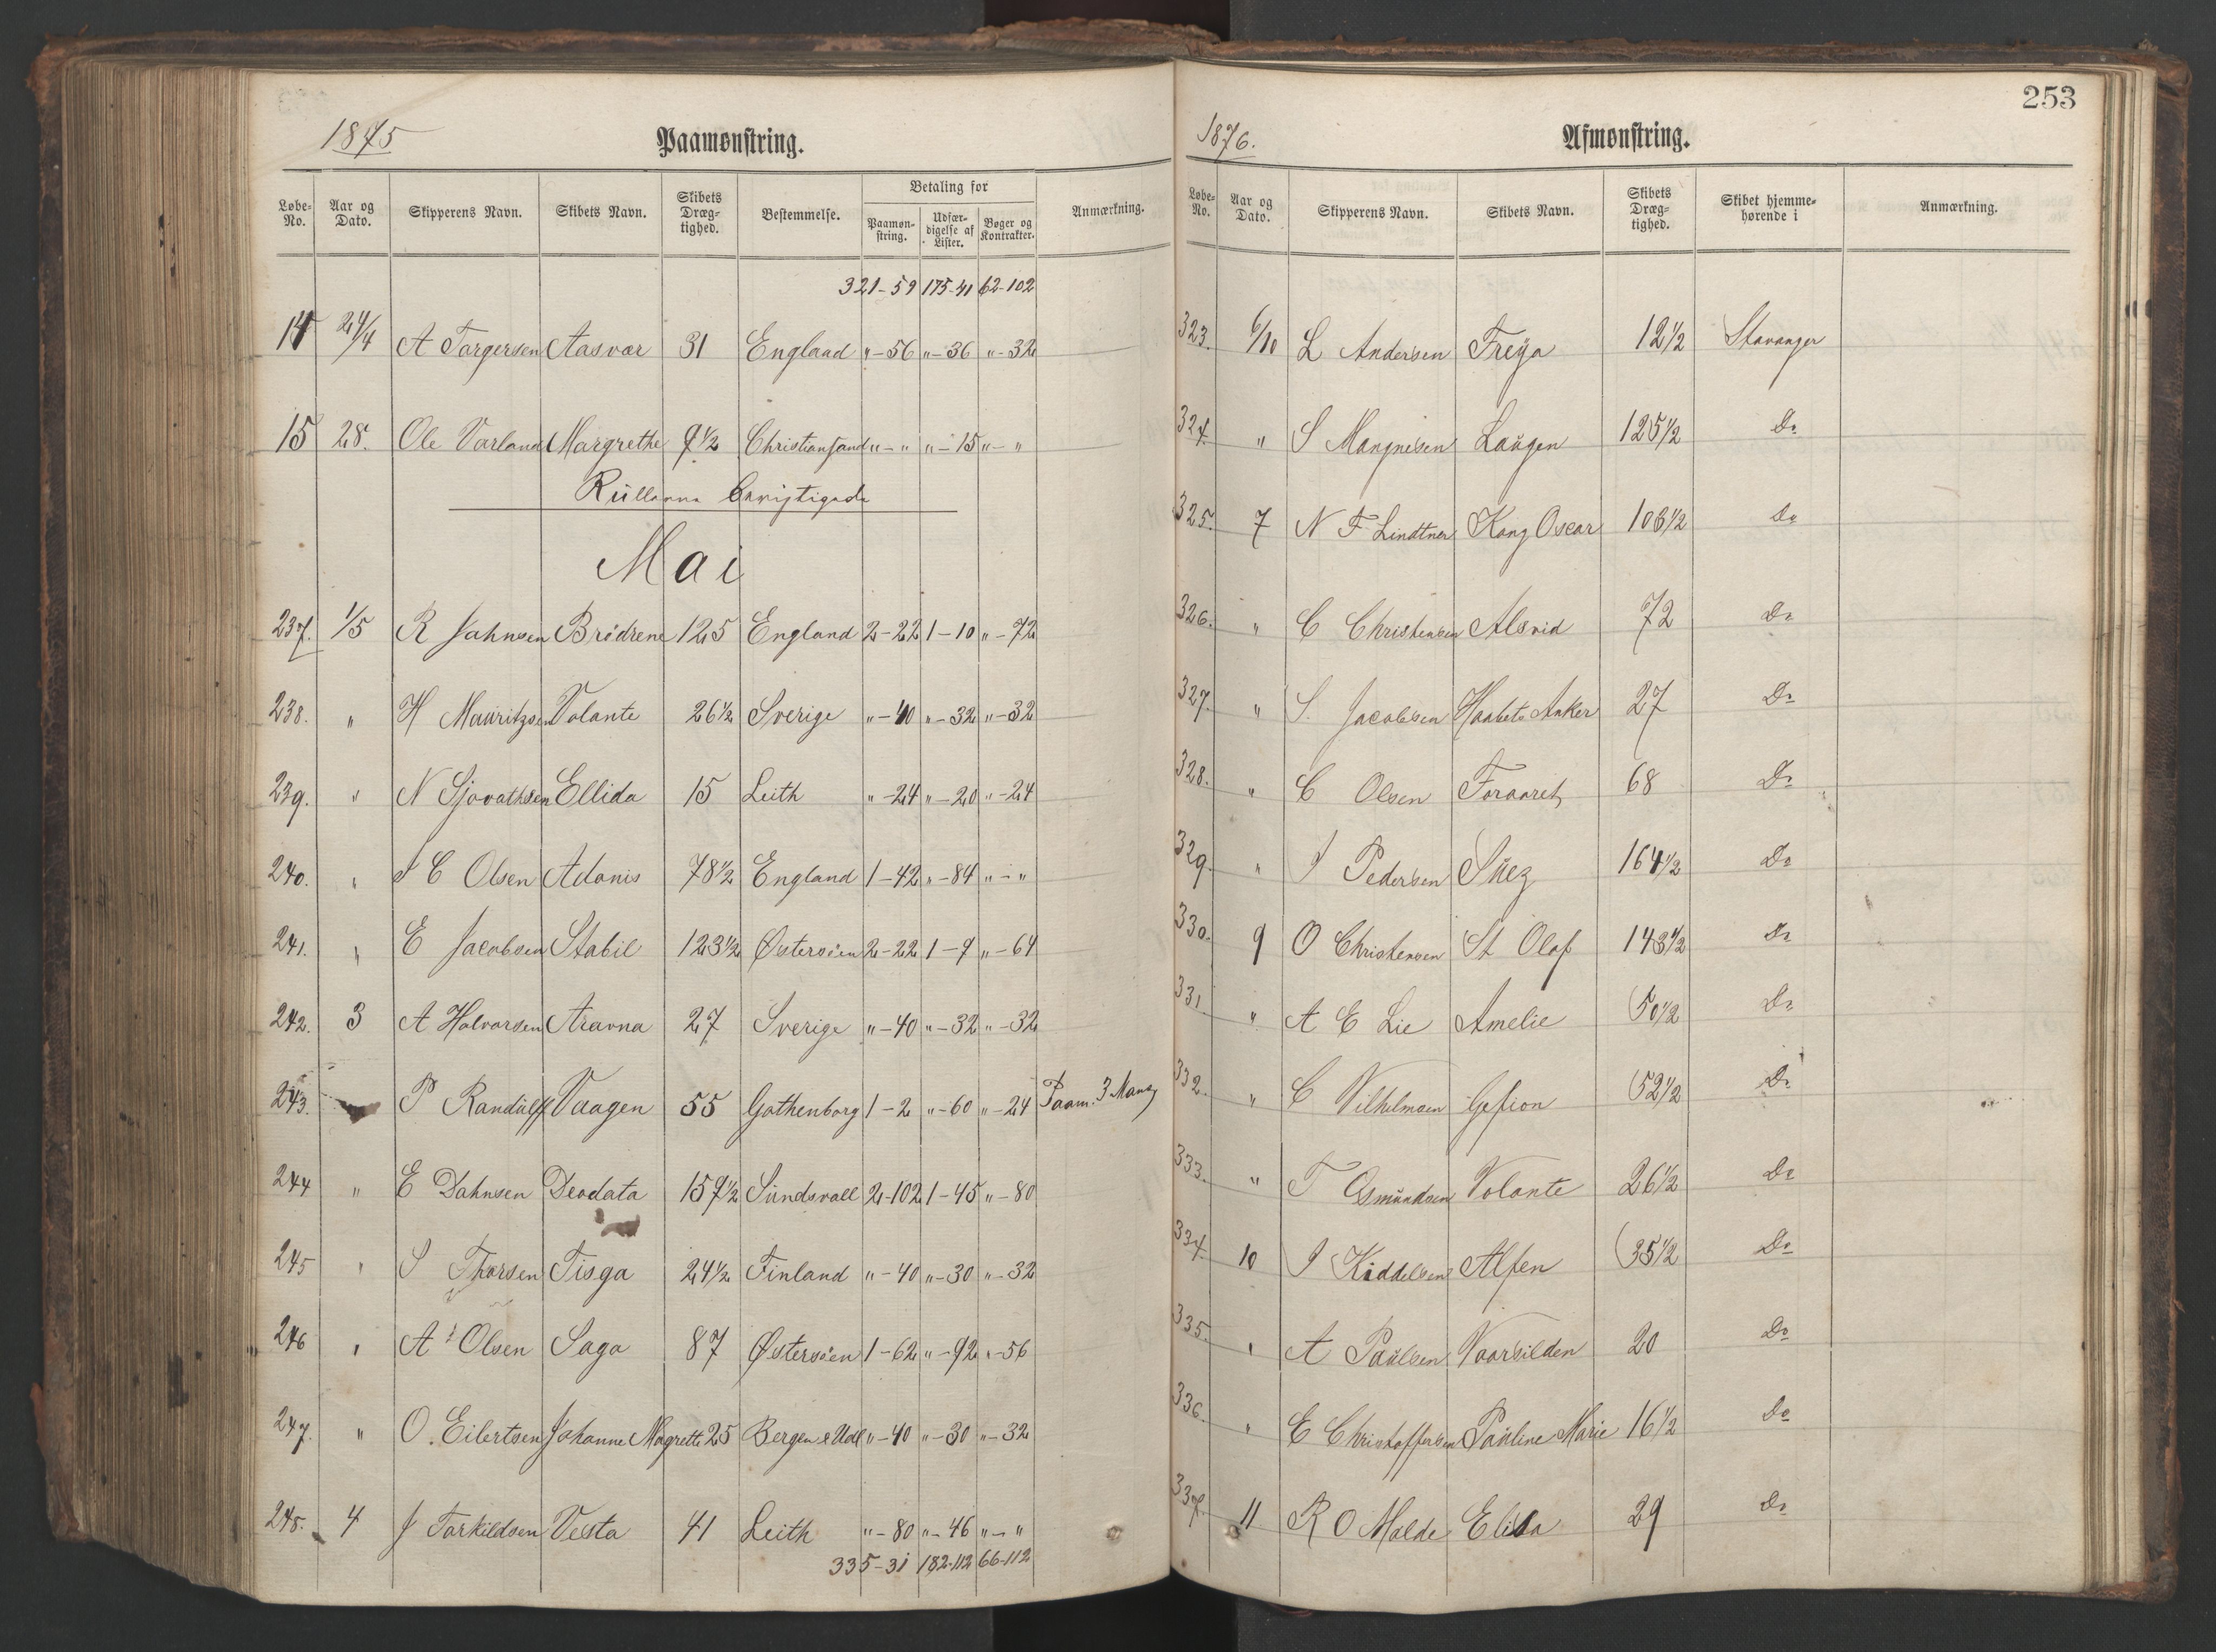 1875
Paamønstring.
Løbe-No. Aar og Dato. Skipperens Navn. Skibets Navn. Skibets Dræg-tighed. Bestemmelse. Betaling for Paamøn-string. Udfær-digelse af Lister. Bøger og Kontrakter. Anmærkning.
321-59 175-41 62-102
14 24/4 A Torgersen Aasvær 31 England "-56 "-36 "-32
15 28. Ole Varland Margrethe 9 1/2 Christiansand "-" "-15 "-"
Rullerne
Mai
237. 1/5 R Jahnsen Brödrene 125 England 2-22 1-10 "-72
238. " H Mauritzen Volante 26 1/2 Sverige "-40 "-32 "-32
239. " N Sjovathsen Ellida 15 Leith "-24 "-20 "-24
240. " S C Olsen Adonis 78 1/2 England 1-42 "-84 "-"
241. " E Jacobsen Stabil 123 1/2 Østersöen 2-22 1-9 "-64
242. 3 A Halvorsen Aravna 27 Sverige "-40 "-32 "-32
243. P Randulff Vaagen 55 Gothenborg 1-2 "-60 "-24 Paam. 3 Mand
244 " E Dahnsen Deodata 159 1/2 Sundsvall 2-102 1-45 "-80
245 " S Thorsen Tisga 24 1/2 Finland "-40 "-30 "-32
246 " A Olsen Saga 87 Østersöen 1-62 "-92 "-56
247. " O. Eilertsen Johanne Magrette 25 Bergen & Udl "-40 "-30 "-32
248. 4 J Torkildsen Vesta 41 Leith "-80 "-46 "-"
335-31 182-112 66-112
253
1876.
Afmønstring.
Løbe-No. Aar og Dato. Skipperens Navn. Skibets Navn. Skibets Dræg-tighed. Skibet hjemme-hørende i Anmærkning.
323. 6/10 L Andersen Freÿa 12 1/2 Stavanger
324. " S Mangnesen Laugen 125 1/2 Do
325. 7 N F Lindtner Kong Oscar 106 1/2 Do
326. " C Christensen Alsvid 72 Do
327. " S. Jacobsen Haabets Anker 27 Do
328. " C Olsen Foraaret 68 Do
329. " S Pedersen Suez 164 1/2 Do
330. 9 O Christensen St Olaf 143 1/2 Do
331. " A E Lie Amelie 50 1/2 Do
332. " C Vilhelmsen Gefion 52 1/2 Do
333. " T Osmundsen Volante 26 1/2 Do
334. 10 S Kiddelsen Alfen 35 1/2 Do
335. " A Paulsen Vaarsilden 20 Do
336. " E Christoffersen Pauline Marie 16 1/2 Do
337. 11 R O Malde Elisa 29 Do